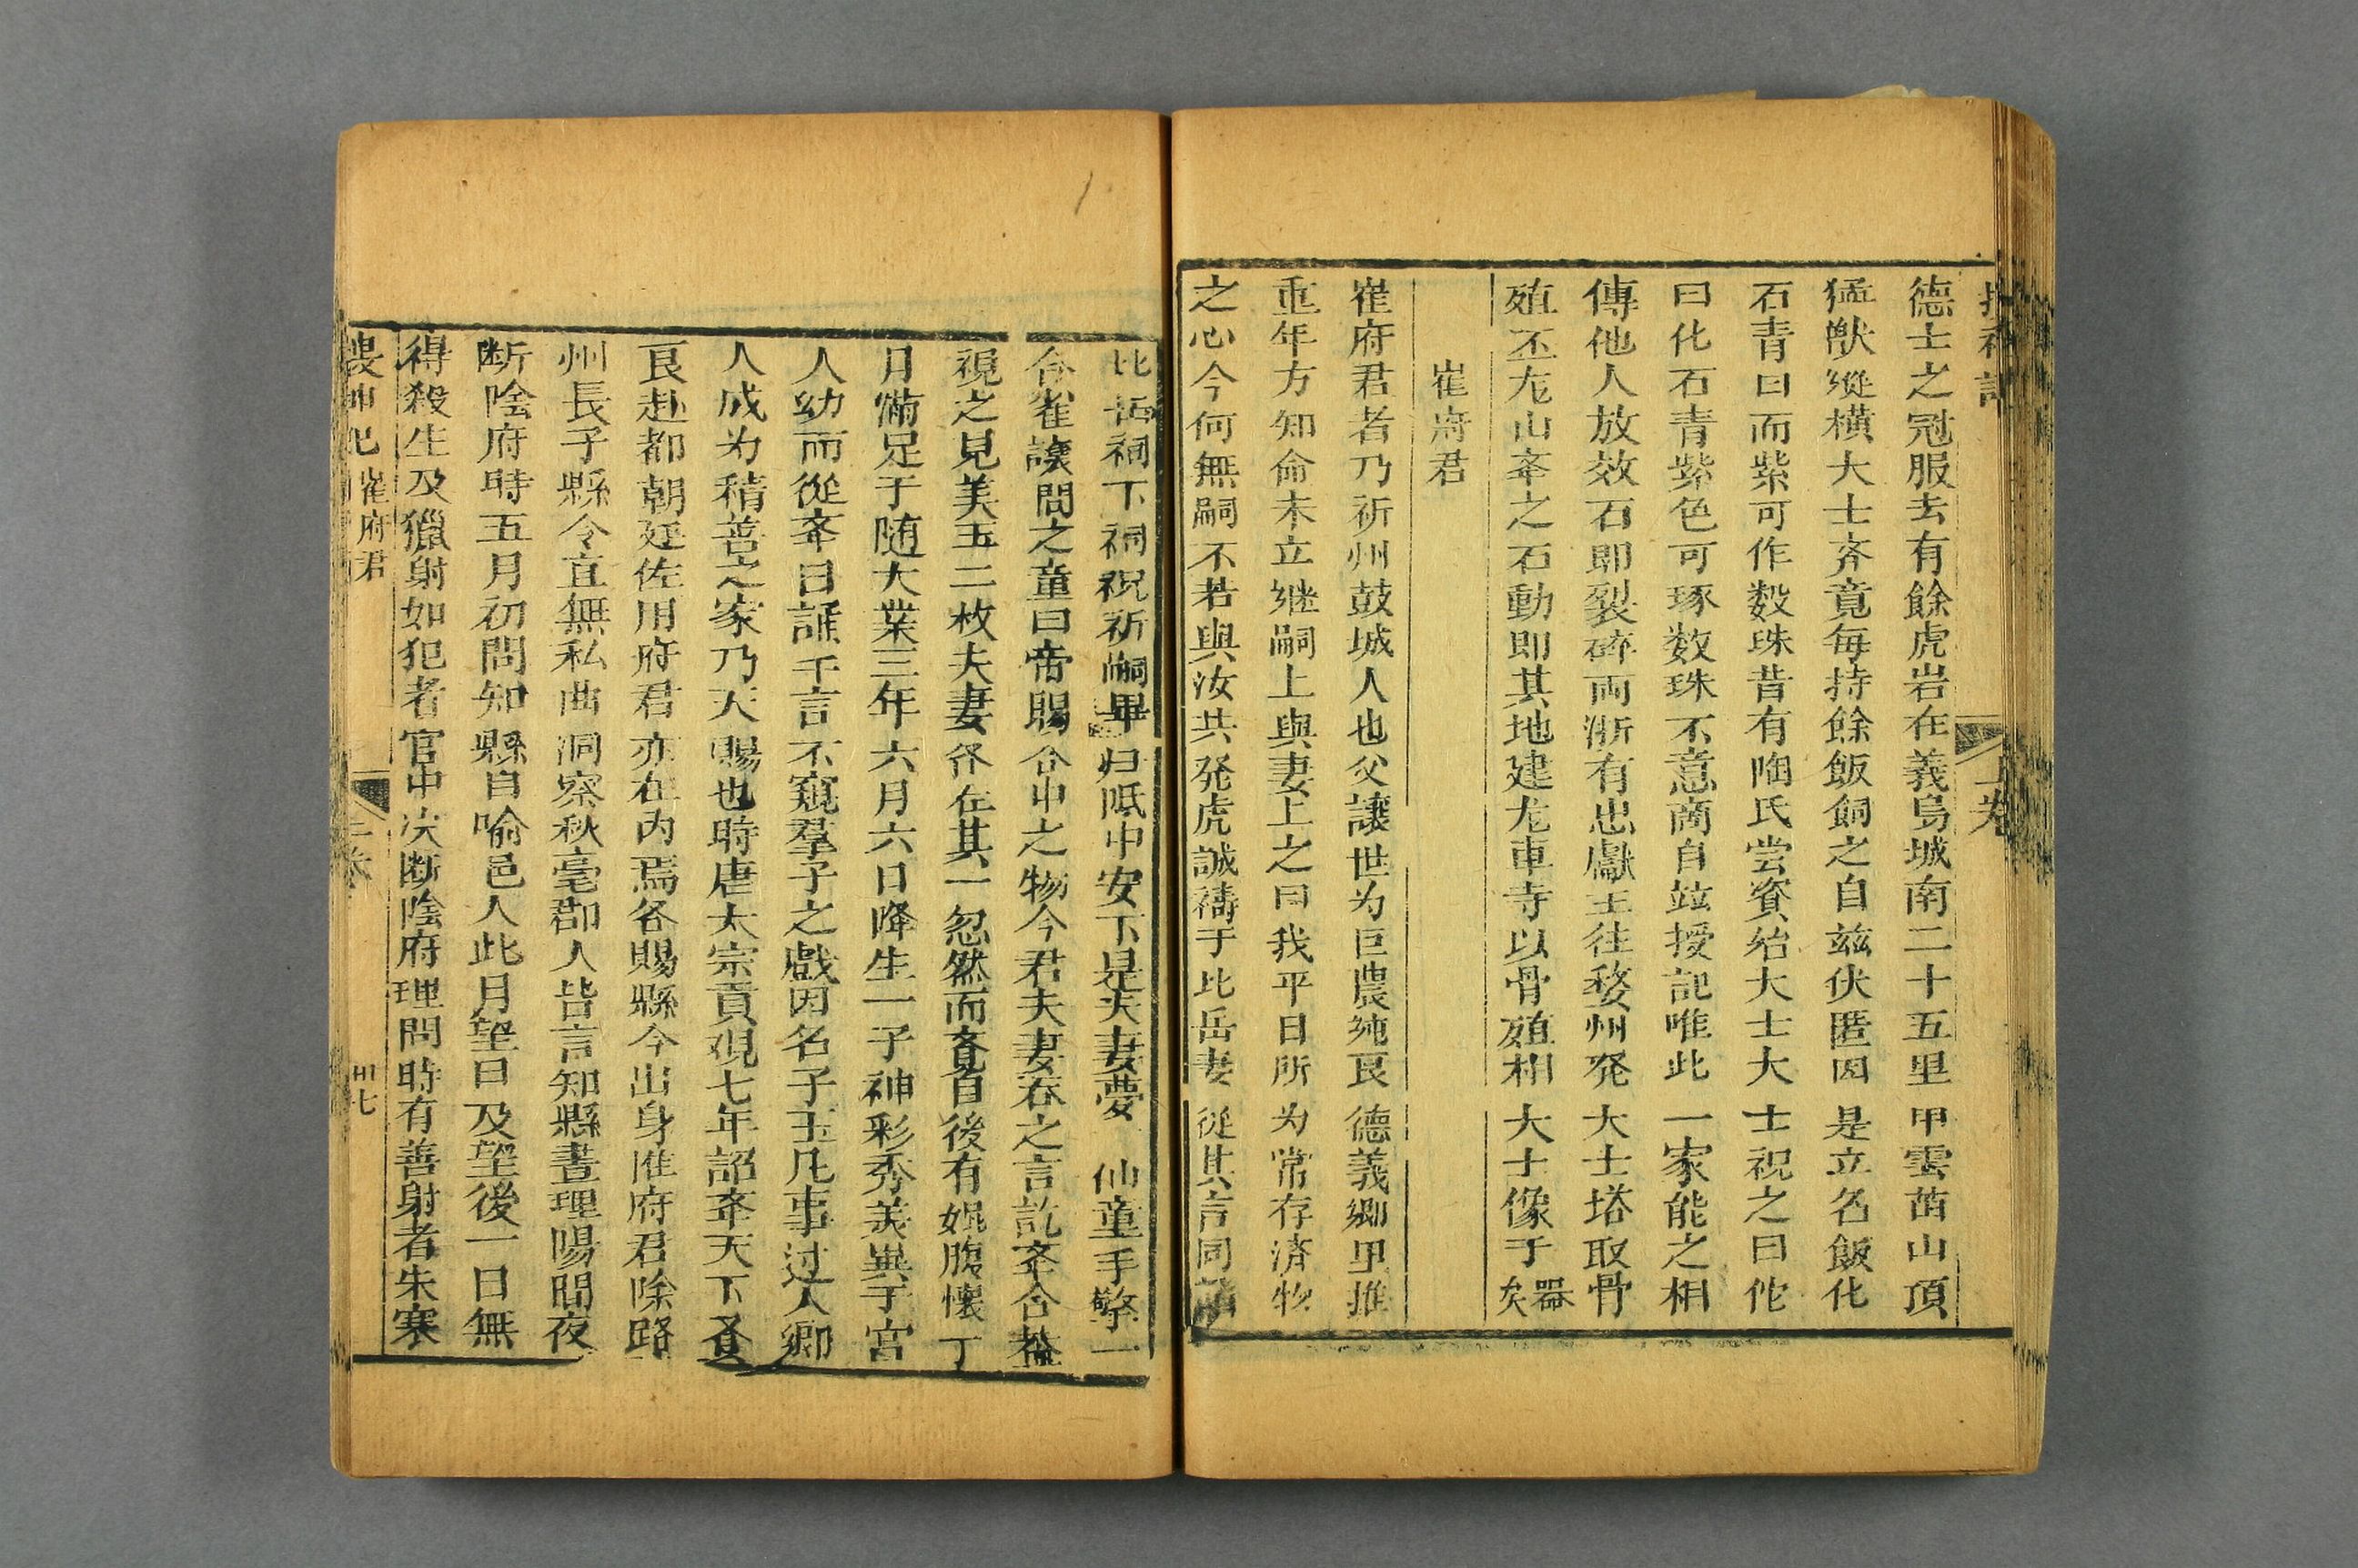 搜神記 上卷
德士之冠服去有餘虎岩在義烏城南二十五里甲雲黃山頂
猛獣縱橫大士齐竟每持餘飯飼之自玆伏匿因是立名飯化
石青曰而紫可作数珠昔有陶氏尝賓给大士大士祝之曰佗
曰化石青紫色可琢数珠不意商自竝授記唯此一家能之相
傳他人放效石即裂碎両浙有忠獻王往婺州発大士塔取骨
殖丕龙山夲之石動即其地建龙車寺以骨殖相大士像于器矣
崔府君
崔府君者乃祈州鼓城人也父讓世为巨農純良德義鄉里推
重年方知命未立継嗣上與妻上之曰我平日所为常存済物
之心今何無嗣不若與汝共発虎誠禱于北岳妻從其言同詣
北岳祠下祠祝祈嗣畢归邸中安下是夫妻夢仙童手擎一
合崔讓問之童曰帝賜合中之物今君夫妻吞之言訖夲合葢
視之見美玉二枚夫妻各在其一忽然而夣自後有娠腹懷丁
月满足于随大業三年六月六日降生一子神彩秀美異于宮
人幼而從夲日誦千言不窺羣子之戲因名子玉凡事过人鄉
人成为積善之家乃天賜也時唐太宗貢观七年詔夲天下贪
良赴都朝廷佐用府君亦在内焉各賜縣今出身惟府君除路
州長子縣令直無私曲洞察秋毫郡人皆言知縣晝理陽間夜
断陰府時五月初問知縣自喻邑人此月望日及望後一日無
得殺生及獵射如犯者官中决断陰府理問時有善射者朱寒
搜神記 崔府君 二卷 卅七